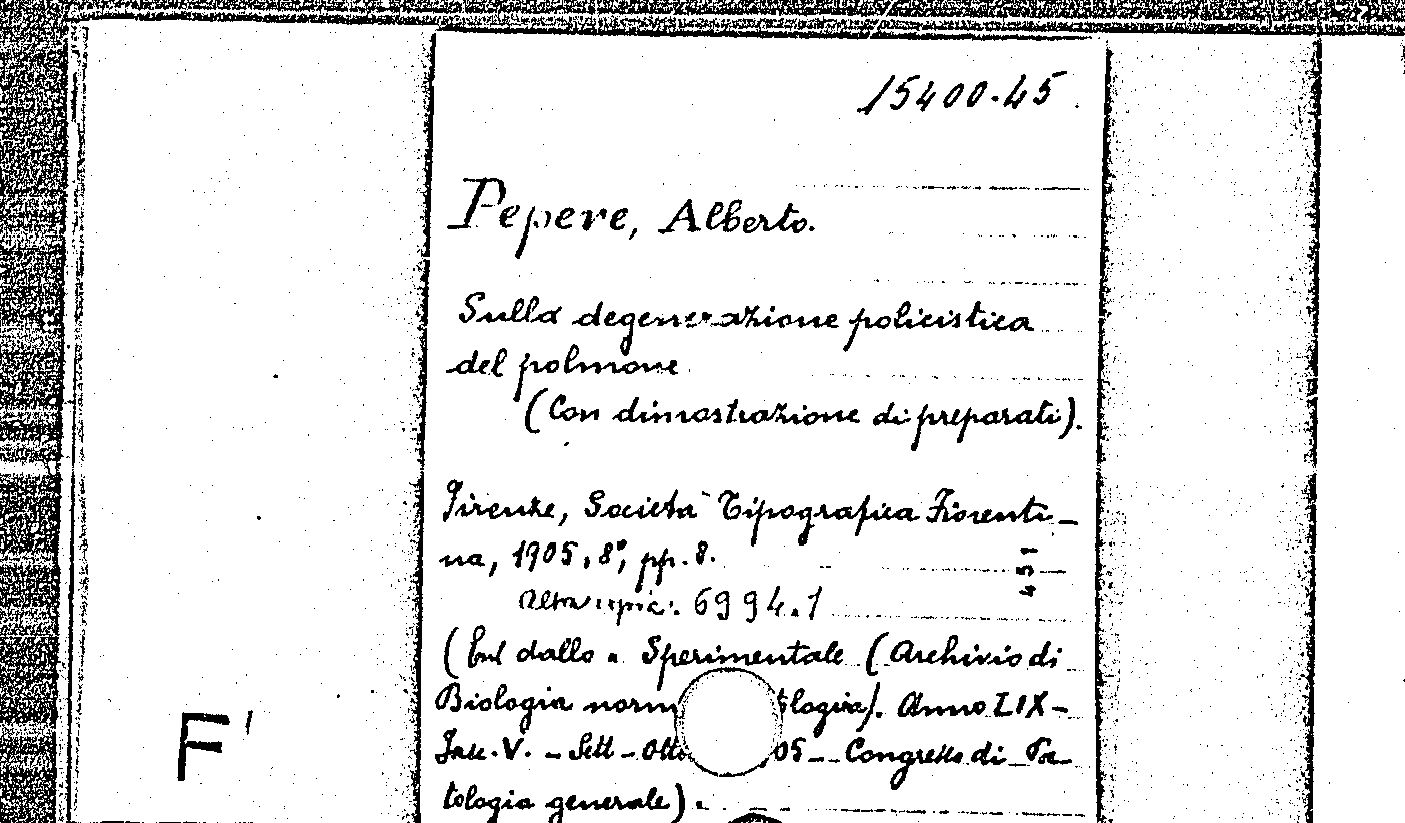 15400.45
Pepere, Alberto.
Sulla degenerazione policistica
del polmone
(Con dimostrazione di preparati).
Firenze, Società Tipografica Fiorenti-
na, 1905, 8°, pp. 8.
451
Altra copia: 6994.1
dallo " Sperimentale (Archivio di
Biologia norm tologia). Anno LIX-
Fasc. V. - Sett - Otto 05 - Congresso di Pa-
tologia generale).
F'